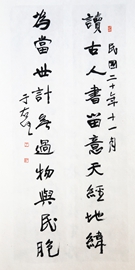 民國二十年十一月
讀古人書留意天經地緯
為當世計無過物與民胞
于右任